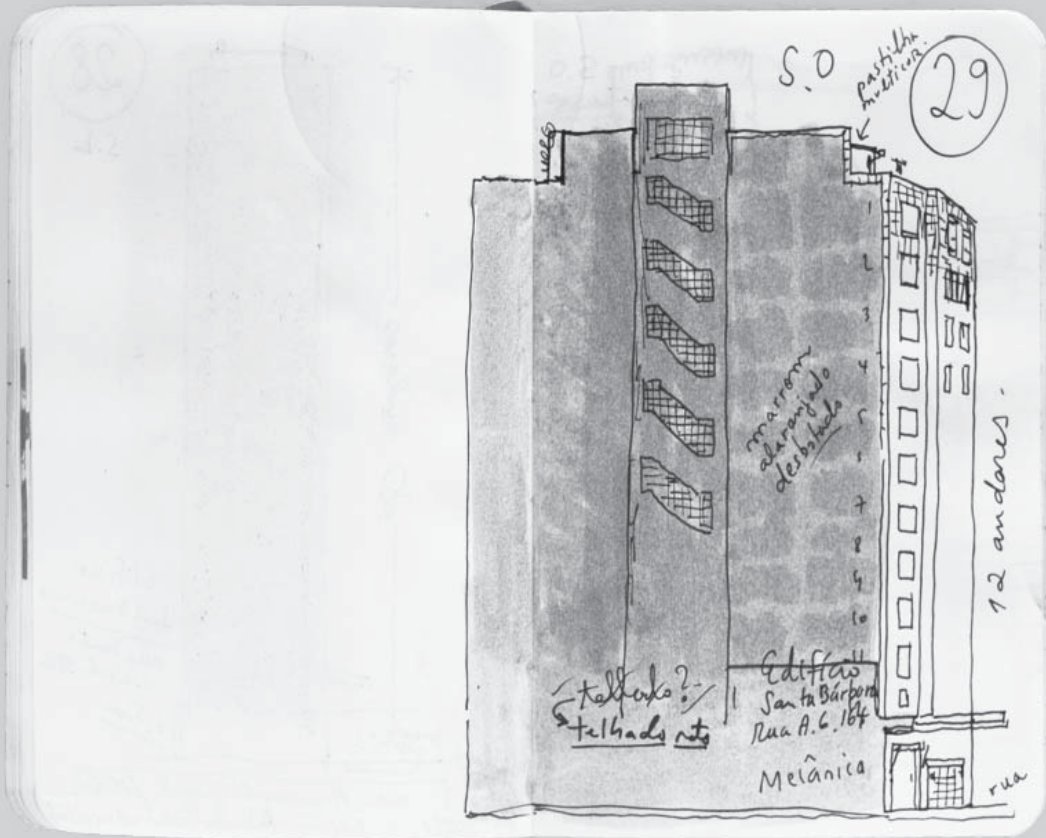 S.O
pastilha
multicor.
29
1
2
3
4
5
6
7
8
9
10
11
marrom
alaranjado
desbotado
12 andares.
telhado?
telhado reto
Edifício
Santa Bárbara
Rua A.G. 164
Mecânica
rua